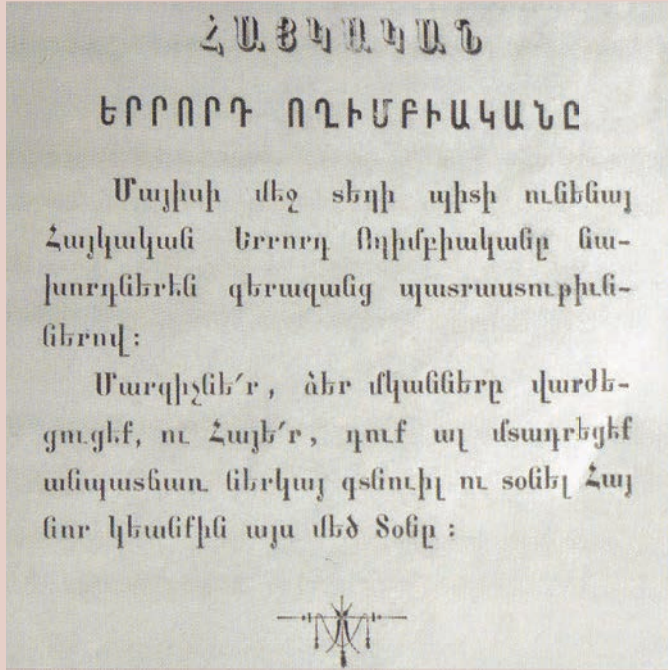 ՀԱՅԿԱԿԱՆ
ԵՐՐՈՐԴ ՈՂԻՄԲԻԱԿԱՆԸ
Մայիսի մեջ տեղի պիտի ունենայ
Հայկական Երրորդ Ողիմբիականը նա-
խորդներեն գերազանց պատրաստութիւն-
ներով։
Մարզիչնե՛ր, ձեր մկանները վարժե-
ցուցէք, ու Հայե՛ր, դուք ալ մտադրեցէք
անպատճառ ներկայ գտնուիլ ու տօնել Հայ
նոր կեանքին այս մեծ Տօնը։